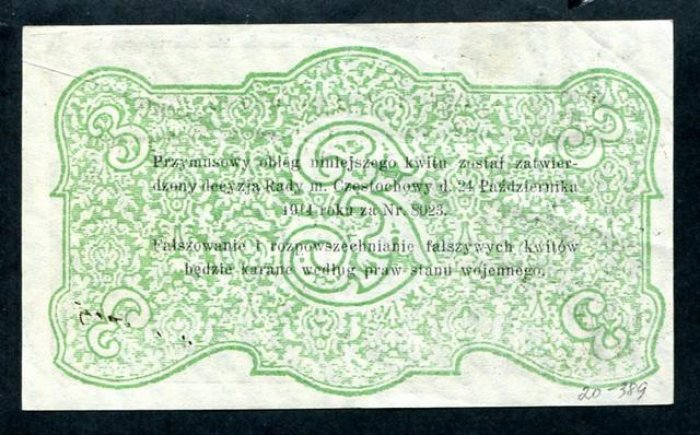 3 3
3
Przymusowy obieg niniejszego kwitu został zatwier-
dzony decyzją Rady m. Częstochowy d. 24 Października
1914 roku za Nr. 8023.
Fałszowanie i rozpowszechnianie fałszywych kwitów
będzie karane według praw stanu wojennego.
3 3
20-389